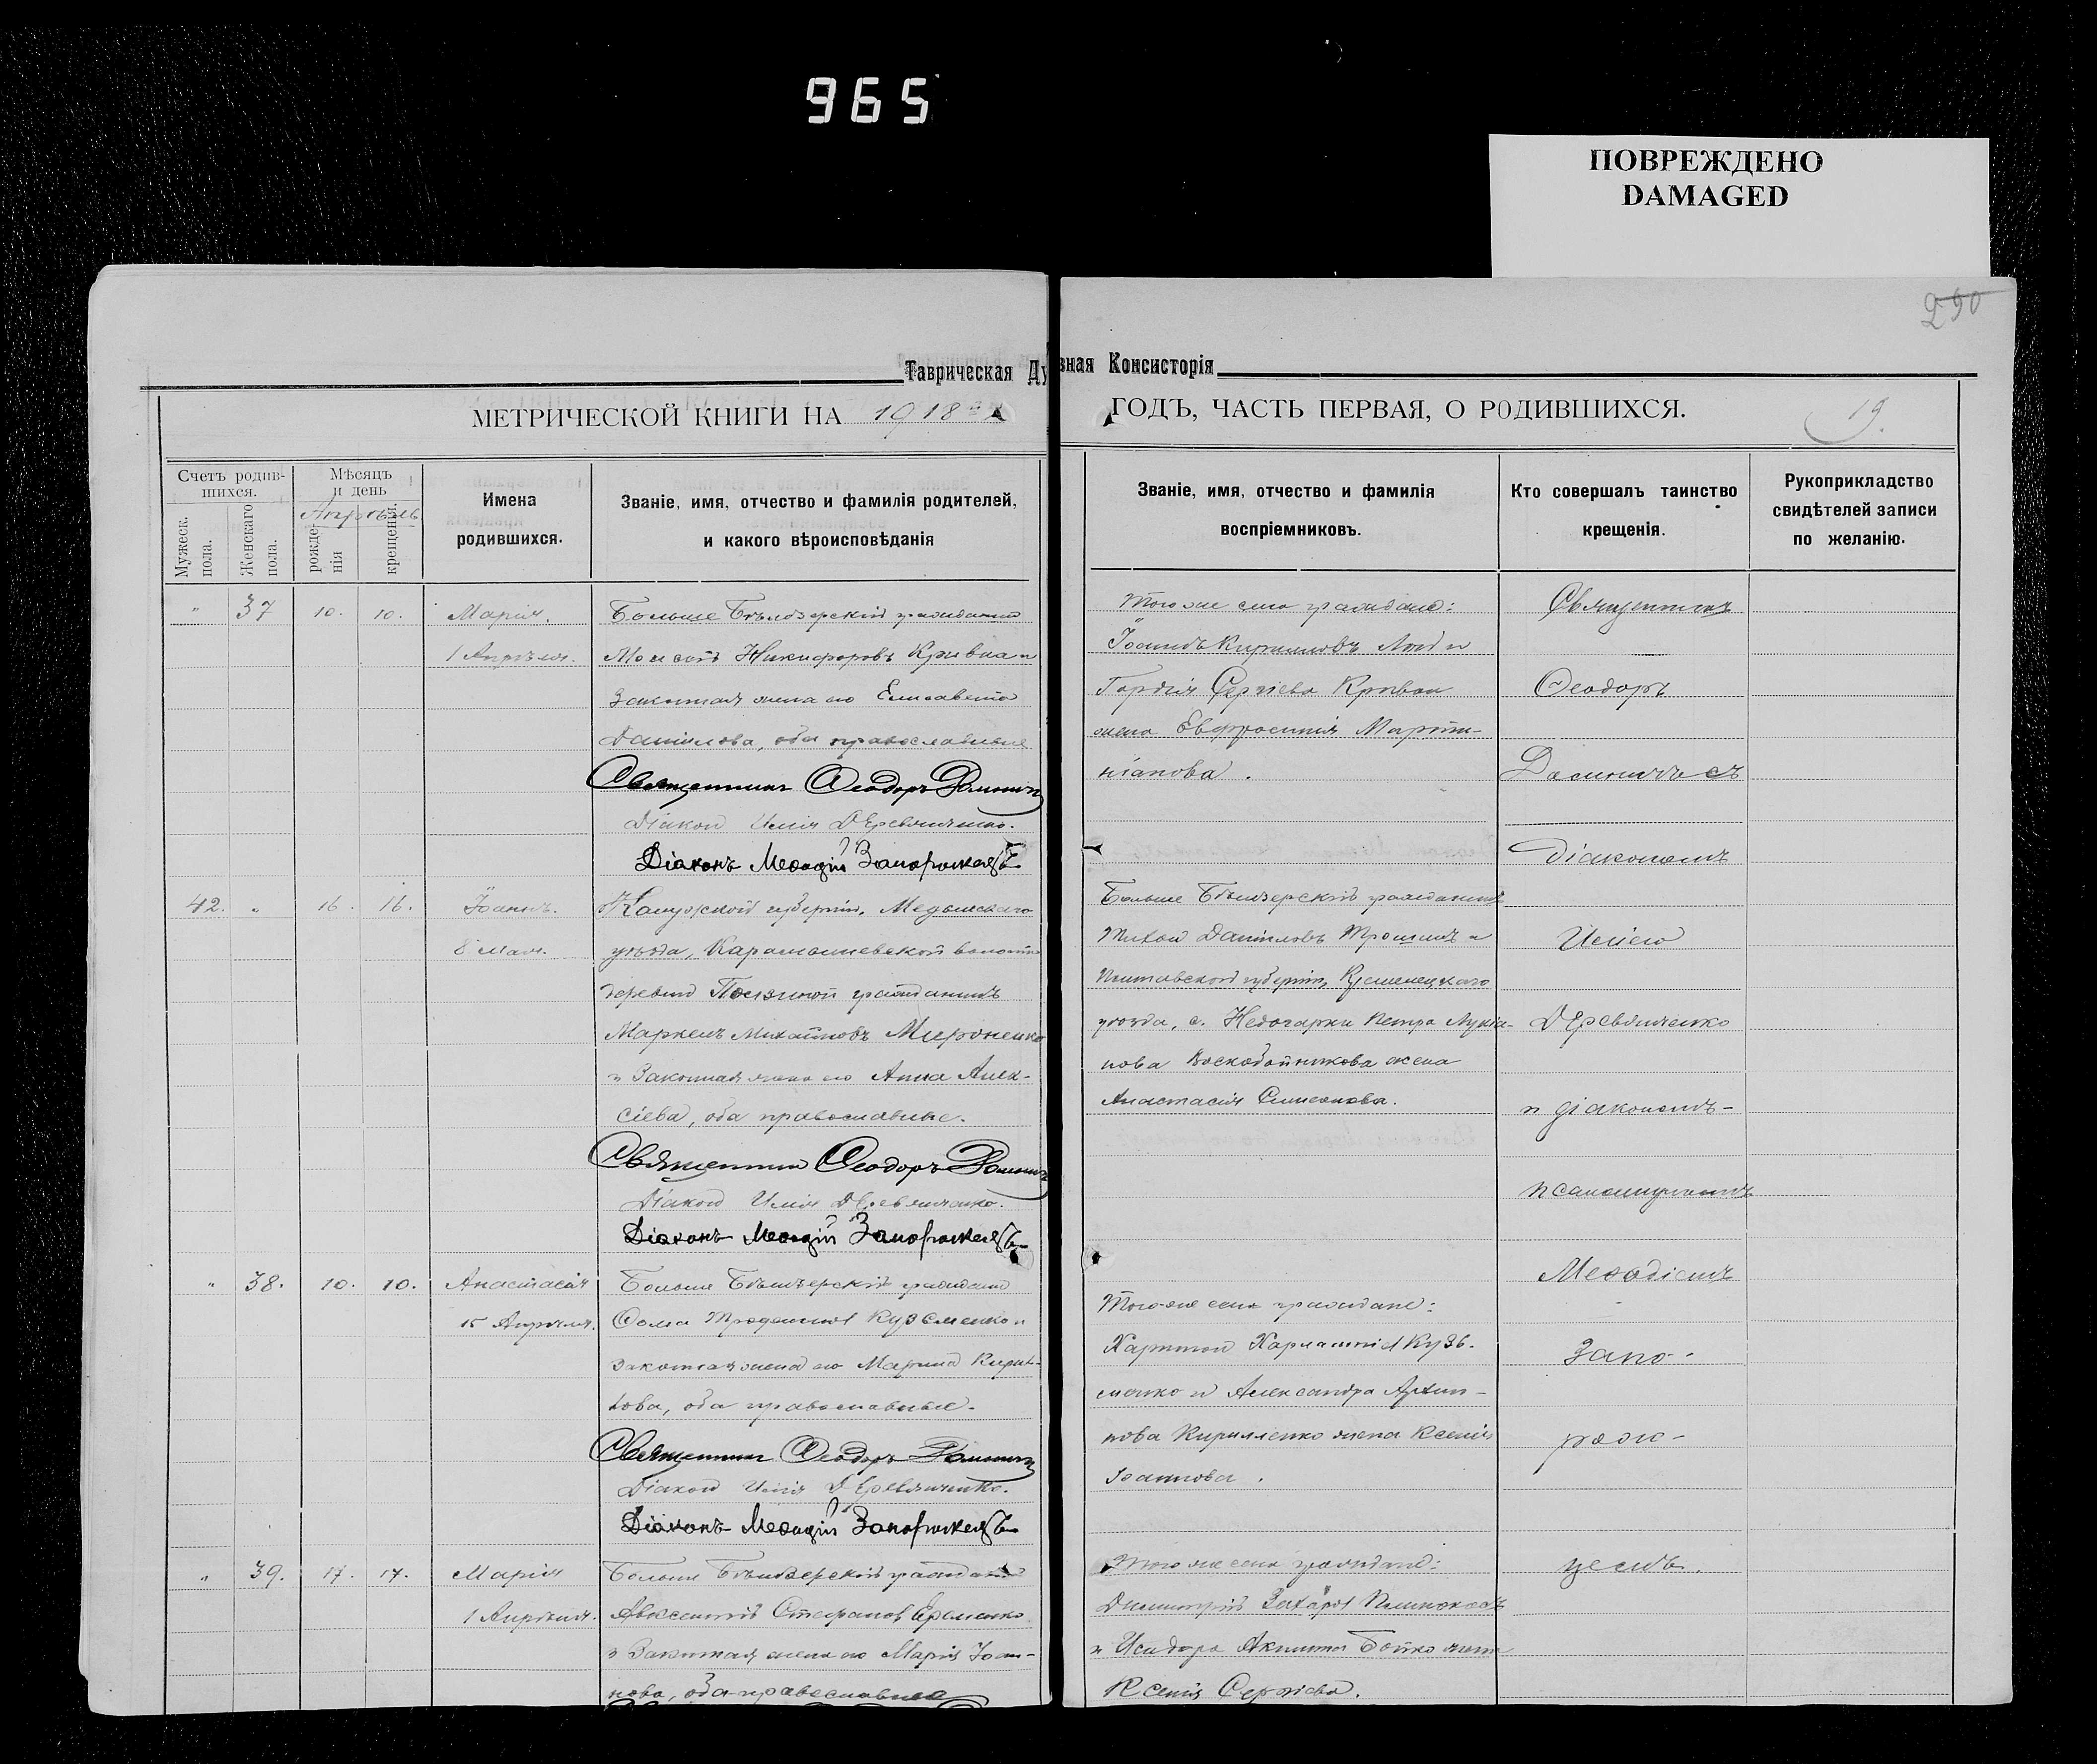 965
ПОВРЕЖДЕНО
DAMAGED
290
Таврическая Ду
вная Консисторія
МЕТРИЧЕСКОЙ КНИГИ НА 1918
ГОДЪ, ЧАСТЬ ПЕРВАЯ, О РОДИВШИХСЯ.
19.
Счетъ родив-
шихся.
Мужеск. пола.
Женскаго пола.
Мѣсяцъ
и день
Апрѣль
рожде-
нія
крещенія.
Имена
родившихся.
Званіе, имя, отчество и фамилія родителей,
и какого вѣроисповѣданія
Званіе, имя, отчество и фамилія
воспріемниковъ.
Кто совершалъ таинство
крещенія.
Рукоприкладство
свидѣтелей записи
по желанію.
" 37 10. 10. Марія.
1 Апрѣля.
Больше Бѣлозерскій гражданинъ
Моисей Никифоровъ Кривка и
Законная жена его Елисавета
Даніилова, оба православные
Священникъ Ѳеодоръ
Діакон Илія Деревянченко.
Діаконъ Меѳодій Запорожецъ
Того же села граждане:
Іоаннъ Кирилловъ
Гордія Сергіева Кривки
жена Евфросинія Марти-
ніанова.
Священникъ
Ѳеодоръ
діакономъ
Иліею
Деревянченко
и діакономъ-
псаломщикомъ
Меѳодіемъ
Запо-
рож-
цемъ.
42. " 16. 16. Іоаннъ.
8 Мая.
Калужской губерніи, Медынскаго
уѣзда, Карамышевской волости
деревни гражданинъ
Маркелъ Михайловъ Мироненко
и Законная жена его Анна Алек-
сіева, оба православные.
Священник Ѳеодоръ
Діакон Илія Деревянченко.
Діаконъ Меѳодій Запорожецъ
Больше Бѣлозерскій гражданинъ
Тихон Даніиловъ Трошинъ и
Полтавской губерніи, Кременецкаго
уѣзда, с. Недогарки Петра Лукіа-
нова Воскобойникова жена
Анастасія Симеонова.
" 38. 10. 10. Анастасія
15 Апрѣля.
Больше Бѣлозерскій гражданин
Ѳома Кузьменко и
законная жена его Марина Кирил-
лова, оба православные.
Священникъ Ѳеодоръ
Діакон Илія Деревянченко.
Діаконъ Меѳодій Запорожецъ
Того-же села граждане:
Харитон Харлампіев Кузь-
менко и Александра Архип-
пова Кирилленко жена Ксенія
Іоаннова.
" 39. 17. 17. Марія
1 Апрѣля.
Больше Бѣлозерскій гражданин
Авксентій Стефанов Еременко
и Законная жена его Марія Іоан-
нова, оба православные
Того же села граждане:
Димитрій Захаров
и Исидора Бойко жена
Ксенія Сергіева.